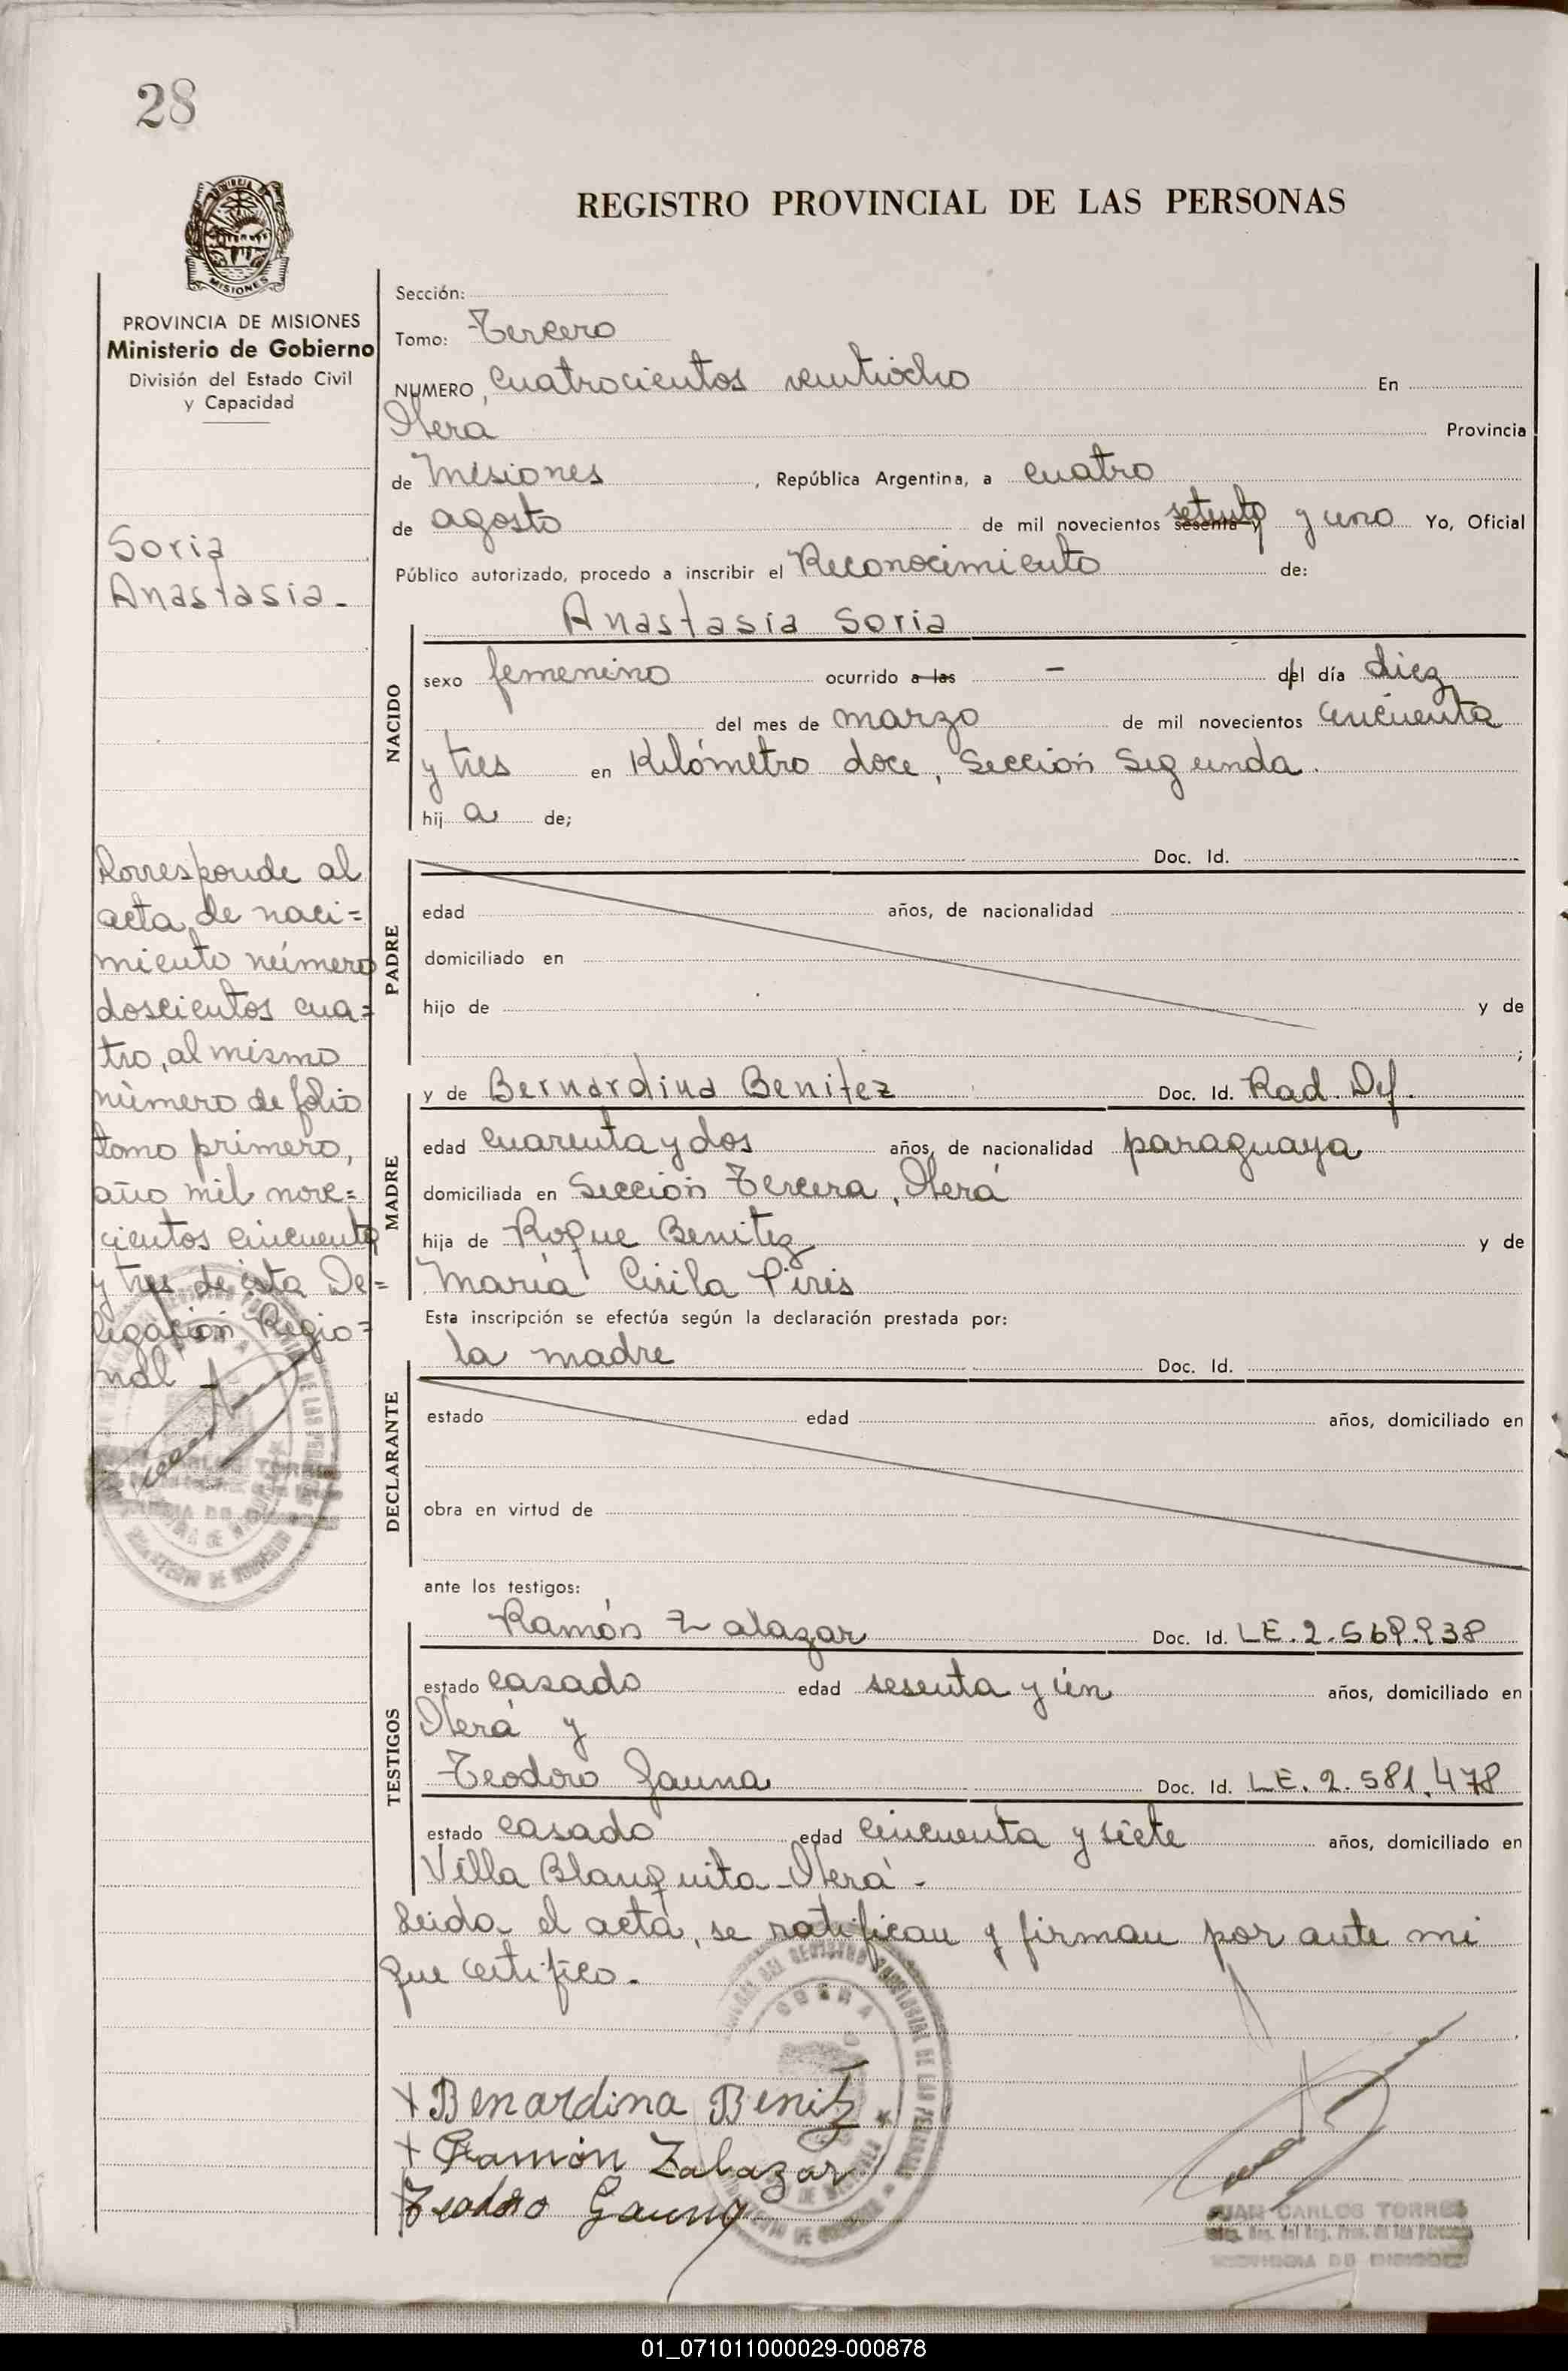 28
REGISTRO PROVINCIAL DE LAS PERSONAS
MISIONES
PROVINCIA DE MISIONES
Ministerio de Gobierno
División del Estado Civil
y Capacidad
Soria
Anastasia.-
Corresponde al
acta de naci=
miento número
doscientos cua=
tro, al mismo
número de folio
tomo primero,
año mil nove=
cientos cincuenta
y tres de ésta De=
legación Regio=
nal
Sección:
Tomo: Tercero
NUMERO, Cuatrocientos veintiocho En
Oberá Provincia
de Misiones, República Argentina, a cuatro
de agosto de mil novecientos sesenta y setenta y uno Yo, Oficial
Público autorizado, procedo a inscribir el Reconocimiento de:
Anastasia Soria
NACIDO
sexo femenino ocurrido a las - del día diez
del mes de marzo de mil novecientos cincuenta
y tres en Kilómetro doce, Sección Segunda.
hij a de;
PADRE
Doc. Id.
edad años, de nacionalidad
domiciliado en
hijo de y de
;
MADRE
y de Bernardina Benitez Doc. Id. Rad. Def.
edad cuarenta y dos años, de nacionalidad paraguaya
domiciliada en Sección Tercera, Oberá
hija de Roque Benitez y de
María Cirila Piris
Esta inscripción se efectúa según la declaración prestada por:
DECLARANTE
la madre Doc. Id.
estado edad años, domiciliado en
obra en virtud de
ante los testigos:
TESTIGOS
Ramón Zalazar Doc. Id. LE. 2.569.938
estado casado edad sesenta y ún años, domiciliado en
Oberá y
Teodoro Gauna Doc. Id. LE. 2.581.478
estado casado edad cincuenta y siete años, domiciliado en
Villa Blanquita - Oberá -
Leida el acta, se ratifican y firman por ante mi
que certifico.-
+ Benardina Benitz
+ Ramón Zalazar
Teodoro Gauna
JUAN CARLOS TORRES
PROVINCIA DE MISIONES
01_071011000029-000878